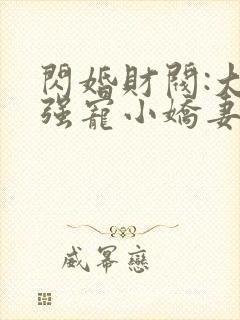 閃婚財閥:大
强寵小嬌妻
威幂戀